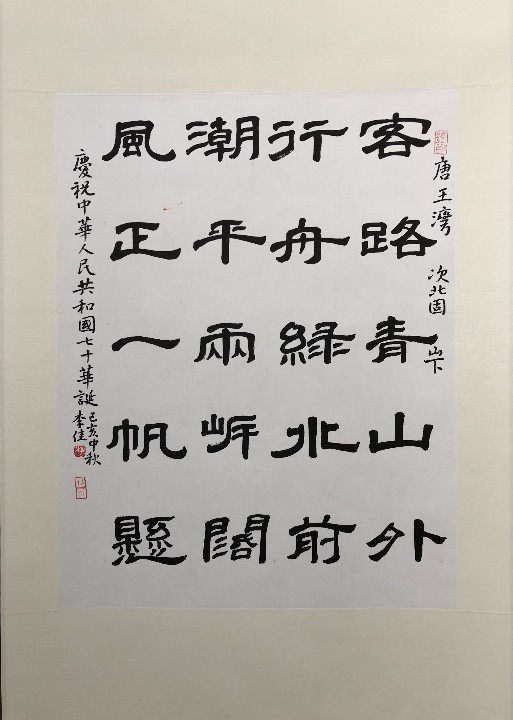 唐 王灣 次北固山下
客路青山外
行舟綠水前
潮平兩岸闊
風正一帆懸
慶祝中華人民共和國七十華誕己亥中秋
李佳